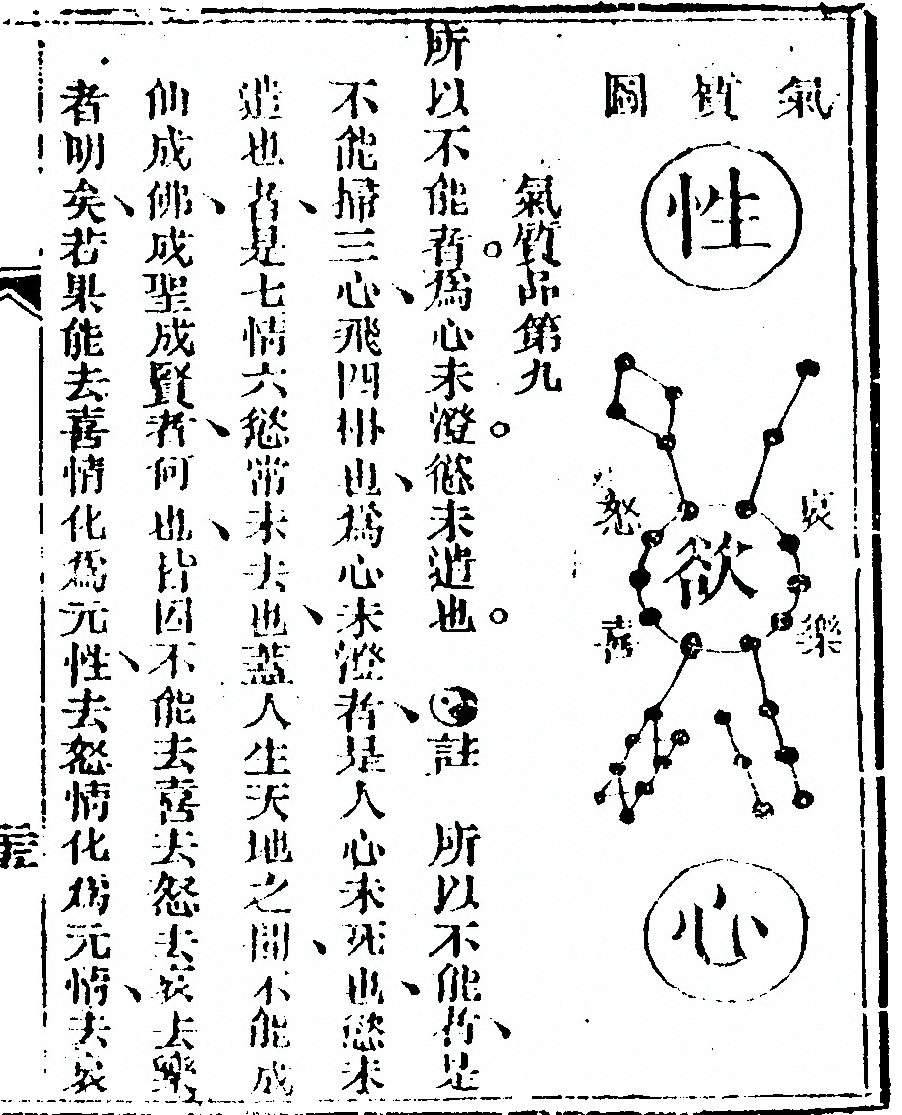 氣質圖
性
怒
哀
欲
喜
樂
心
氣質品第九
所以不能者。為心未澄。慾未遣也。註 所以不能者、是
不能掃三心、飛四相也、為心未澄者、是人心未死也、慾未
遣也、者是七情六慾常未去也、蓋人生天地之間、不能成
仙成佛、成聖成賢者、何也、皆因不能去喜去怒去哀去樂
者明矣、若果能去喜情化為元性、去怒情化為元情、去哀